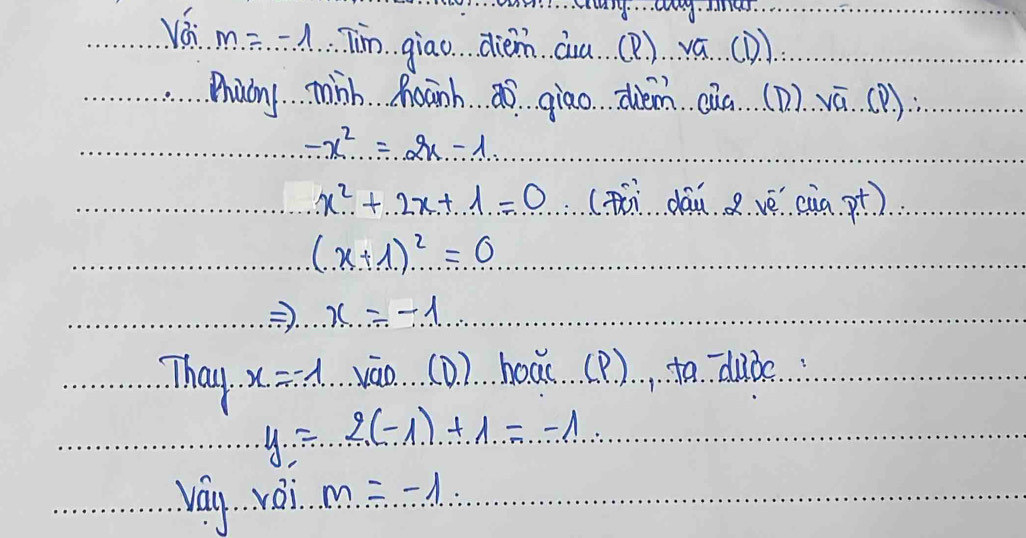 Với m = -1. Tìm giao điểm của (P) và (D).
Phương trình hoành độ giao điểm của (D) và (P):
-x² = 2x - 1.
x² + 2x + 1 = 0. (Đổi dấu 2 vế của pt).
(x + 1)² = 0
⇒ x = -1.
Thay x = -1 vào (D) hoặc (P), ta được:
y = 2(-1) + 1 = -1.
Vậy với m = -1.